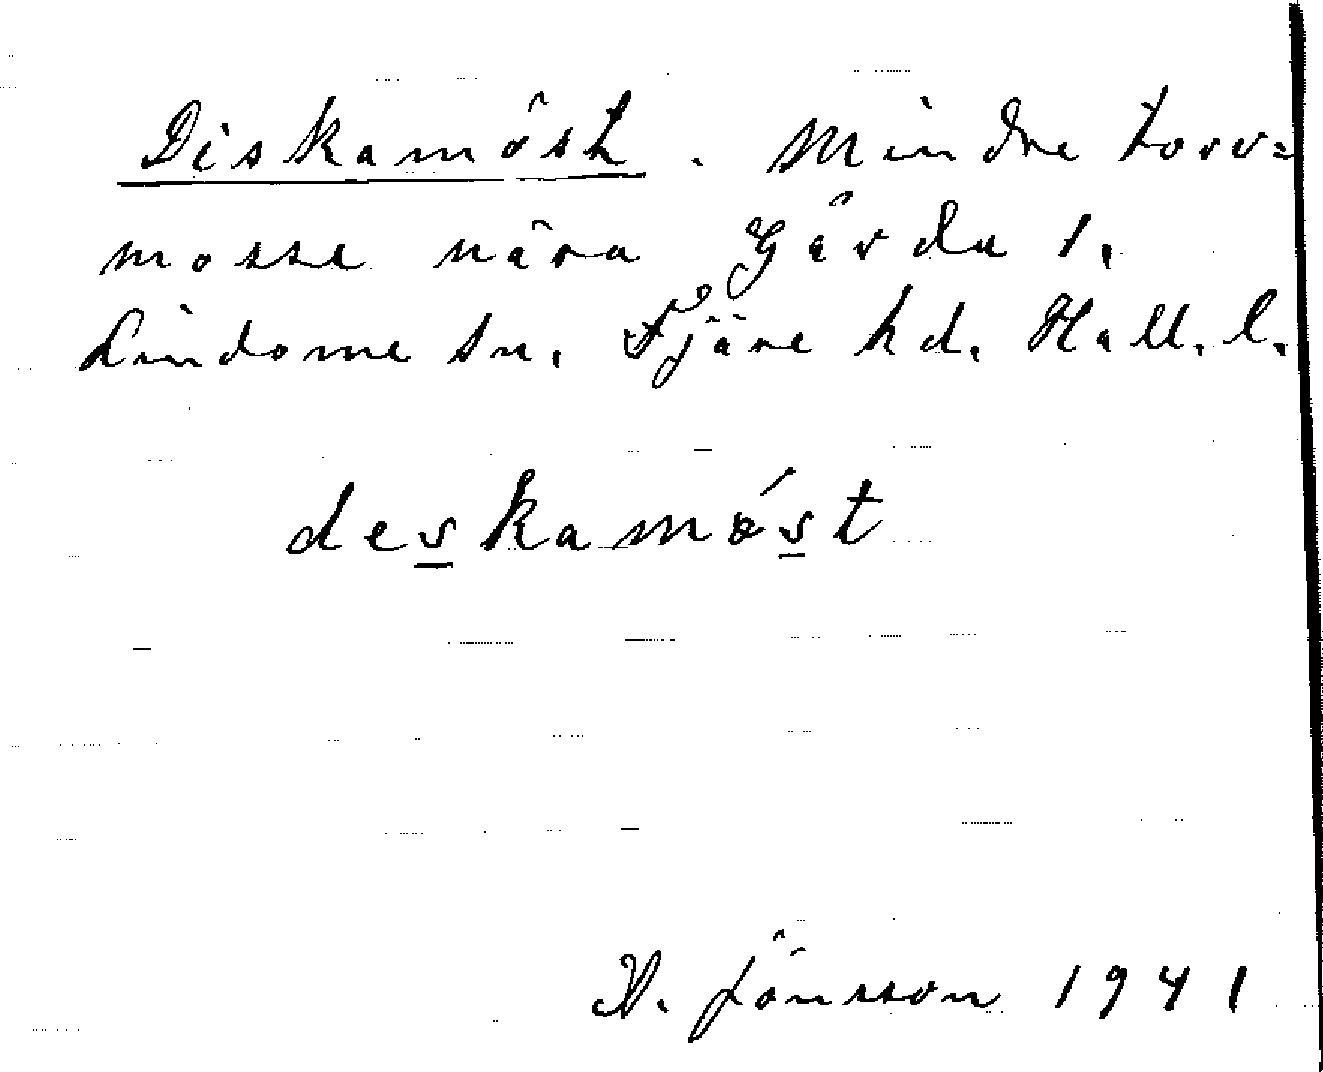 Diskamöst. Mindre torv=
mosse nära Gärda 1.
Lindome sn. Fjäre hd. Hall. l.
deskamǿst
Jönsson 1941